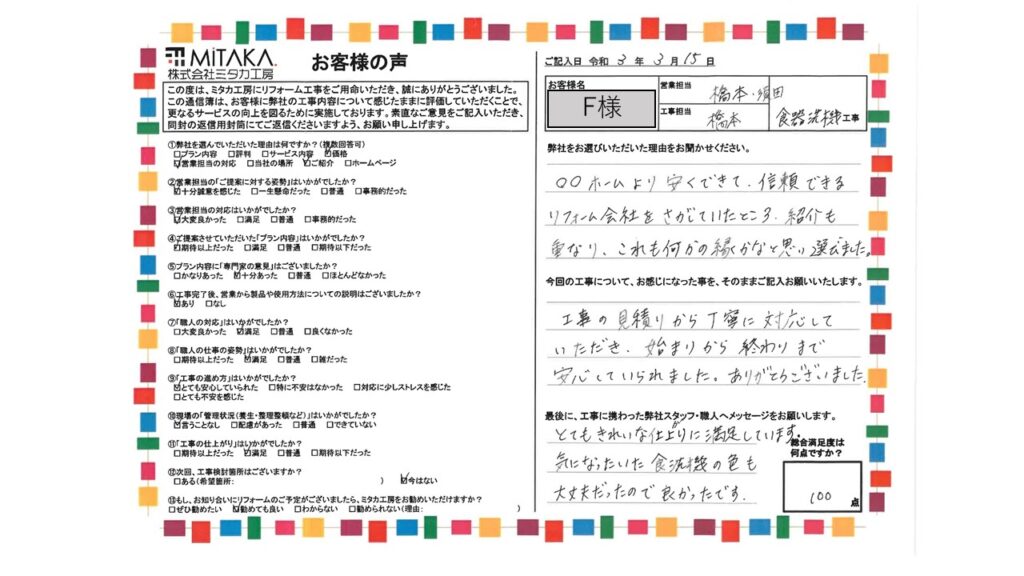 MiTAKA.
株式会社ミタカ工房
お客様の声
この度は、ミタカ工房にリフォーム工事をご用命いただき、誠にありがとうございました。
この通信簿は、お客様に弊社の工事内容について感じたままに評価していただくことで、
更なるサービスの向上を図るために実施しております。素直なご意見をご記入いただき、
同封の返信用封筒にてご返信くださいますよう、お願い申し上げます。
①弊社を選んでいただいた理由は何ですか?(複数回答可)
□プラン内容 □評判 □サービス内容 ☑価格
☑営業担当の対応 □当社の場所 ☑ご紹介 □ホームページ
②営業担当の「ご提案に対する姿勢」はいかがでしたか?
☑十分誠意を感じた □一生懸命だった □普通 □事務的だった
③営業担当の対応はいかがでしたか?
☑大変良かった □満足 □普通 □事務的だった
④ご提案させていただいた「プラン内容」はいかがでしたか?
☑期待以上だった □満足 □普通 □期待以下だった
⑤プラン内容に「専門家の意見」はございましたか?
□かなりあった ☑十分あった □普通 □ほとんどなかった
⑥工事完了後、営業から製品や使用方法についての説明はございましたか?
☑あり □なし
⑦「職人の対応」はいかがでしたか?
□大変良かった ☑満足 □普通 □良くなかった
⑧「職人の仕事の姿勢」はいかがでしたか?
□期待以上だった ☑満足 □普通 □雑だった
⑨「工事の進め方」はいかがでしたか?
☑とても安心していられた □特に不安はなかった □対応に少しストレスを感じた
□とても不安を感じた
⑩現場の「管理状況(養生・整理整頓など)」はいかがでしたか?
☑言うことなし □配慮があった □普通 □できていない
⑪「工事の仕上がり」はいかがでしたか?
□期待以上だった ☑満足 □普通 □期待以下だった
⑫次回、工事検討箇所はございますか?
□ある(希望箇所: ) ☑今はない
⑬もし、お知り合いにリフォームのご予定がございましたら、ミタカ工房をお勧めいただけますか?
□ぜひ勧めたい ☑勧めても良い □わからない □勧められない(理由: )
ご記入日 令和 3 年 3 月 15 日
お客様名
F様
営業担当 橋本・須田
工事担当 橋本
食器洗機工事
弊社をお選びいただいた理由をお聞かせください。
〇〇ホームより安くできて、信頼できる
リフォーム会社をさがしていたところ、紹介も
重なり、これも何かの縁かなと思い選びました。
今回の工事について、お感じになった事を、そのままご記入お願いいたします。
工事の見積りから丁寧に対応して
いただき、始まりから終わりまで
安心していられました。ありがとうございました。
最後に、工事に携わった弊社スタッフ・職人へメッセージをお願いします。
とてもきれいな仕上がりに満足しています。
気になったいた食洗機の色も
大丈夫だったので良かったです。
総合満足度は
何点ですか?
100 点